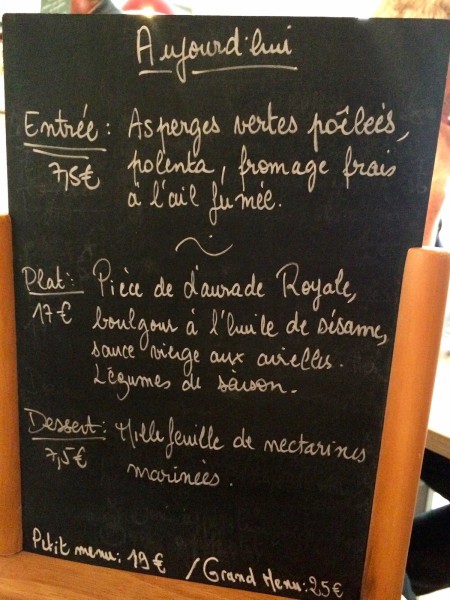 Aujourd'hui
Entrée : Asperges vertes poêlées,
7,5€ polenta, fromage frais
à l'ail fumée.
Plat : Pièce de daurade Royale,
17€ boulgour à l'huile de sésame,
sauce vierge aux airelles.
Légumes de saison.
Dessert : Millefeuille de nectarines
7,5€ marinées.
Petit menu : 19€ / Grand Menu : 25€